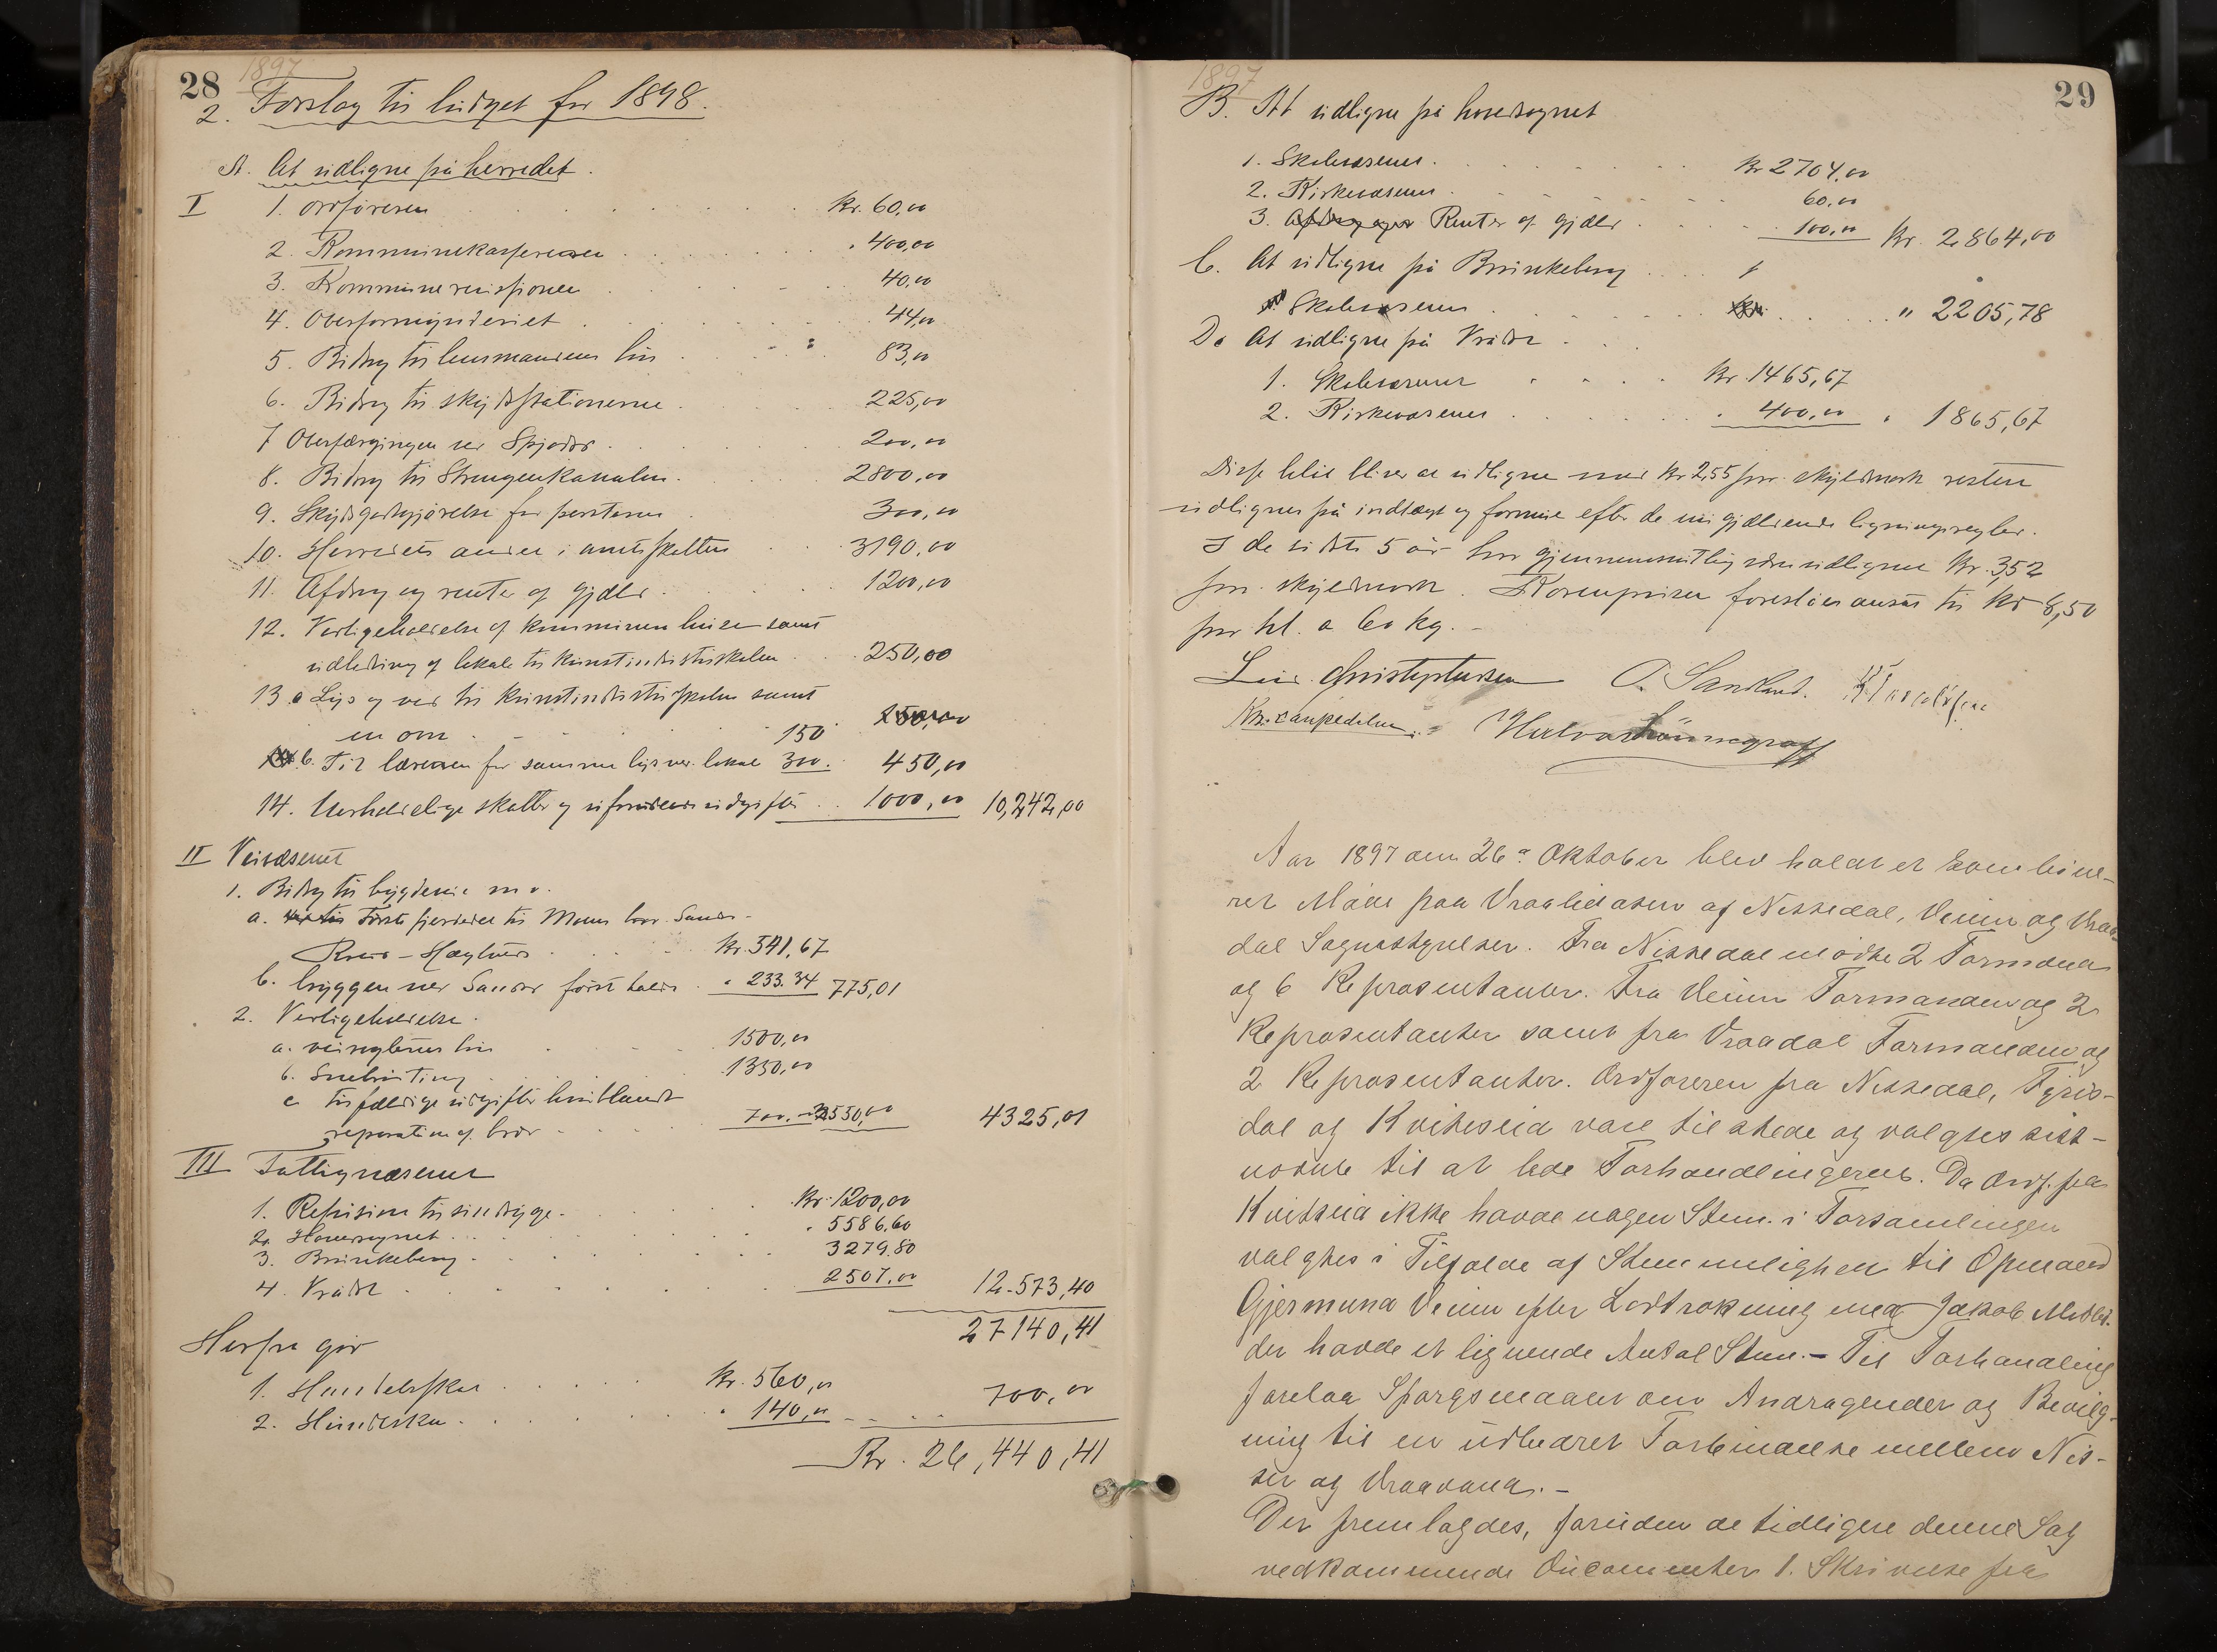 28
1897
2. Forslag til budget for 1898.
A. At udligne på herredet.
I 1. Ordføreren Kr. 60,00
2. Kommunekassereren 400,00
3. Kommunerevisjonen 40,00
4. Overformynderiet 44,00
5. Bidrag til lensmandens hus 83,00
6. Bidrag til skydsstationerne 225,00
7 Oversærgingen ved Spjodsr 200,00
8. Bidrag til Strengenkanalen 2800,00
9. Skydsgodtgjørelse for presterne 300,00
10. Herredets andel i amtsskatten 3190,00
11. Afdrag og renter af gjæld 1200,00
12. Vedligeholdelse af kommunens huse samt
udleining af lokale til kunstindustriskolen 250,00
13 a Lys og ved til kunstindustriskolen samt
150
b. Til læreren for samme lys ved lokale 300. 450,00
14. Uerholdelige skatter og uforudseede udgifter 1000,00 10,242,00
II Veivæsenet
1. Bidrag til bygdevei m v.
a. Første fjerdedel til Moens bro Sundr-
Kr. 541,67
b. bryggen ved Sundr første halvd. " 233.34 775,01
2. Vedligeholdelse.
a. 1500,00
b. Snebrøting 1350,00
c tilfældige udgifter hvoriblandt
reparation af broer 700. 3550,00 4325,01
III Fattigvæsenet
1. Refusion til sindsyge. Kr. 1200,00
2. Hovedsognet " 5586.60
3. Brunkeberg 3279.80
4. Vrådal 2507,00 12.573,40
27140,41
Herfra går
1. Handelsskat Kr. 560,00
2. Hundeskat " 140,00 700,00
Kr. 26,440,41
1897
29
B. At udligne på hovedsognet
1. Skolevæsenet. Kr 2704,00
2. Kirkevæsenet 60,00
3. Renter af gjæld 100,00 Kr. 2864,00
C. At udligne på Brunkeberg
Skolevæsenet " 2205,78
D. At udligne på Vrådal
1. Skolevæsenet Kr. 1465,67
2. Kirkevæsenet 400,00 " 1865,67
Disse beløb bliver at udligne med Kr 2,55 for skyldmark resten
udlignes på indtægt og formue efter de nugjældende ligningsregler.
I de sidste 5 år har gjennemsnitlig været udlignet Kr. 3,52
pr. skyldmark. Kornprisen foreslåes ansat til Kr 8,50
pr hl. a 60 kg.
O. Sandland.
Aar 1897 den 26de Oktober blev holdt et kombine-
ret Møde paa Vraaliosen af Nissedal, Veum og Vraa-
dal Sognestyrelser. Fra Nissedal mødte 2 Formænd
og 6 Repræsentanter. Fra Veum Formanden og 2
Repræsentanter samt fra Vraadal Formanden og
2 Repræsentanter. Ordføreren fra Nissedal, Fyris-
dal og Kviteseid vare tilstede og valgtes sidst-
nævnte til at lede Forhandlingerne. Da Ordf. fra
Kvitseid ikke havde nogen Stem. i Forsamlingen
valgtes i Tilfælde af Stemmelighed til Opmand
Gjermund Veum efter Lodtrækning med Jakob
der havde et lignende Antal Stem. - Til Forhandling
forelaa Spørgsmaalet om Andragender og Bevilg-
ning til en udbedret Forbindelse mellem Nis-
ser og Vraavand. -
Der fremlagdes, foruden de tidligere denne Sag
vedkommende Documenter 1. Skrivelse fra